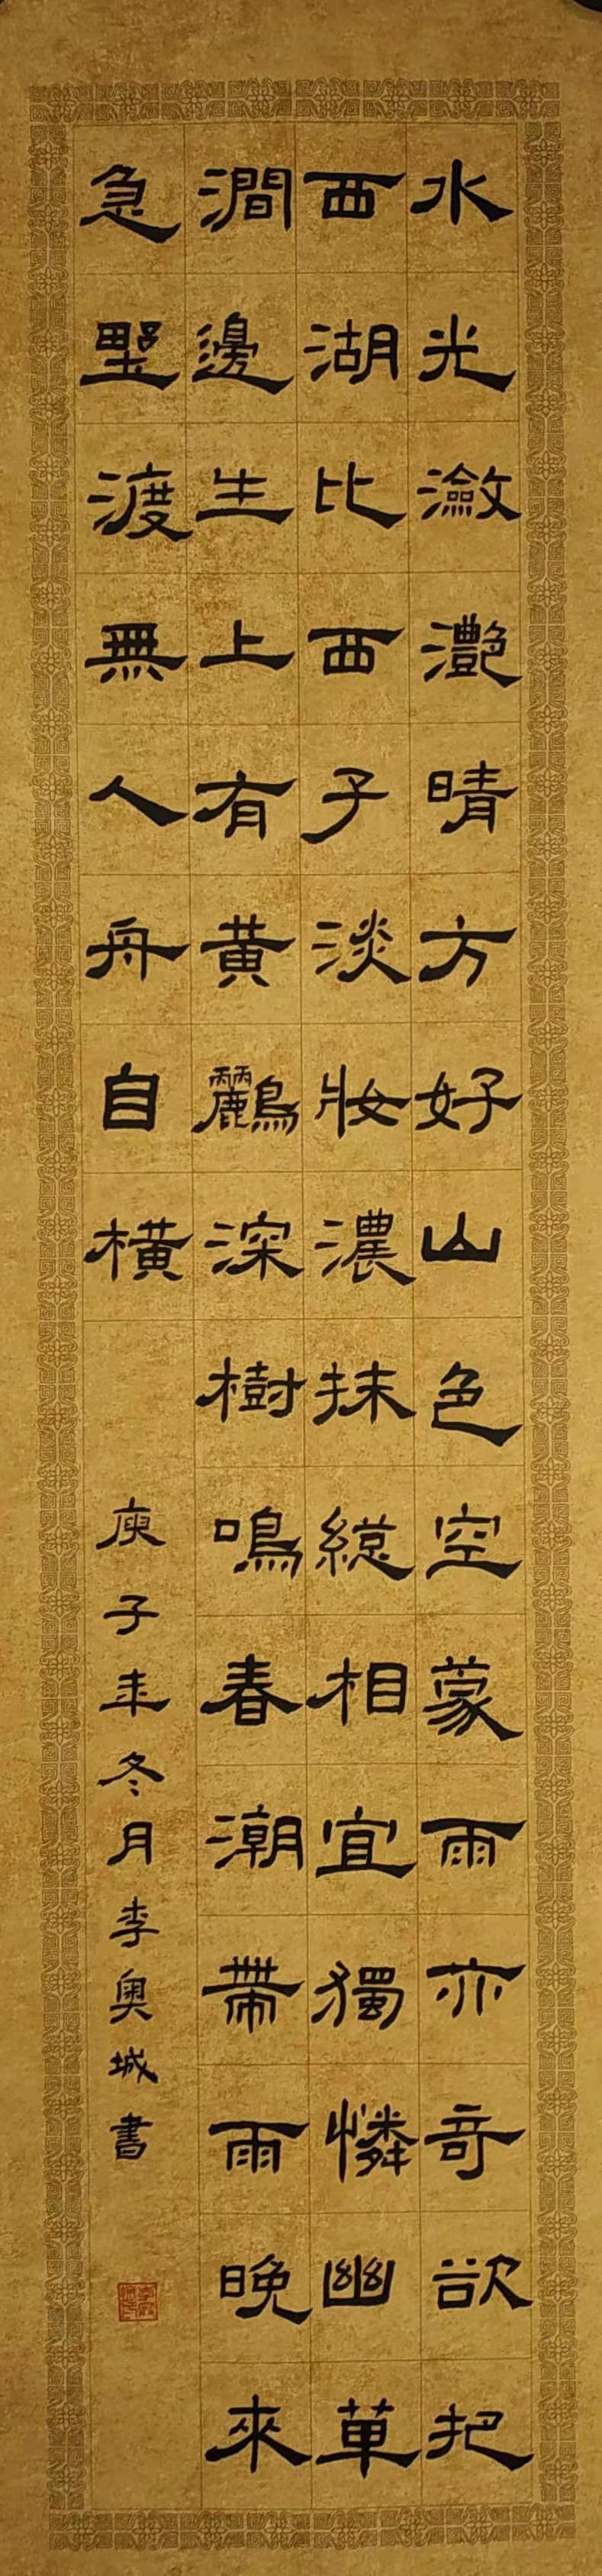 水光瀲灩晴方好山色空蒙雨亦奇欲把
西湖比西子淡妝濃抹總相宜獨憐幽草
澗邊生上有黃鸝深樹鳴春潮帶雨晚來
急野渡無人舟自橫
庚子年冬月李奧城書